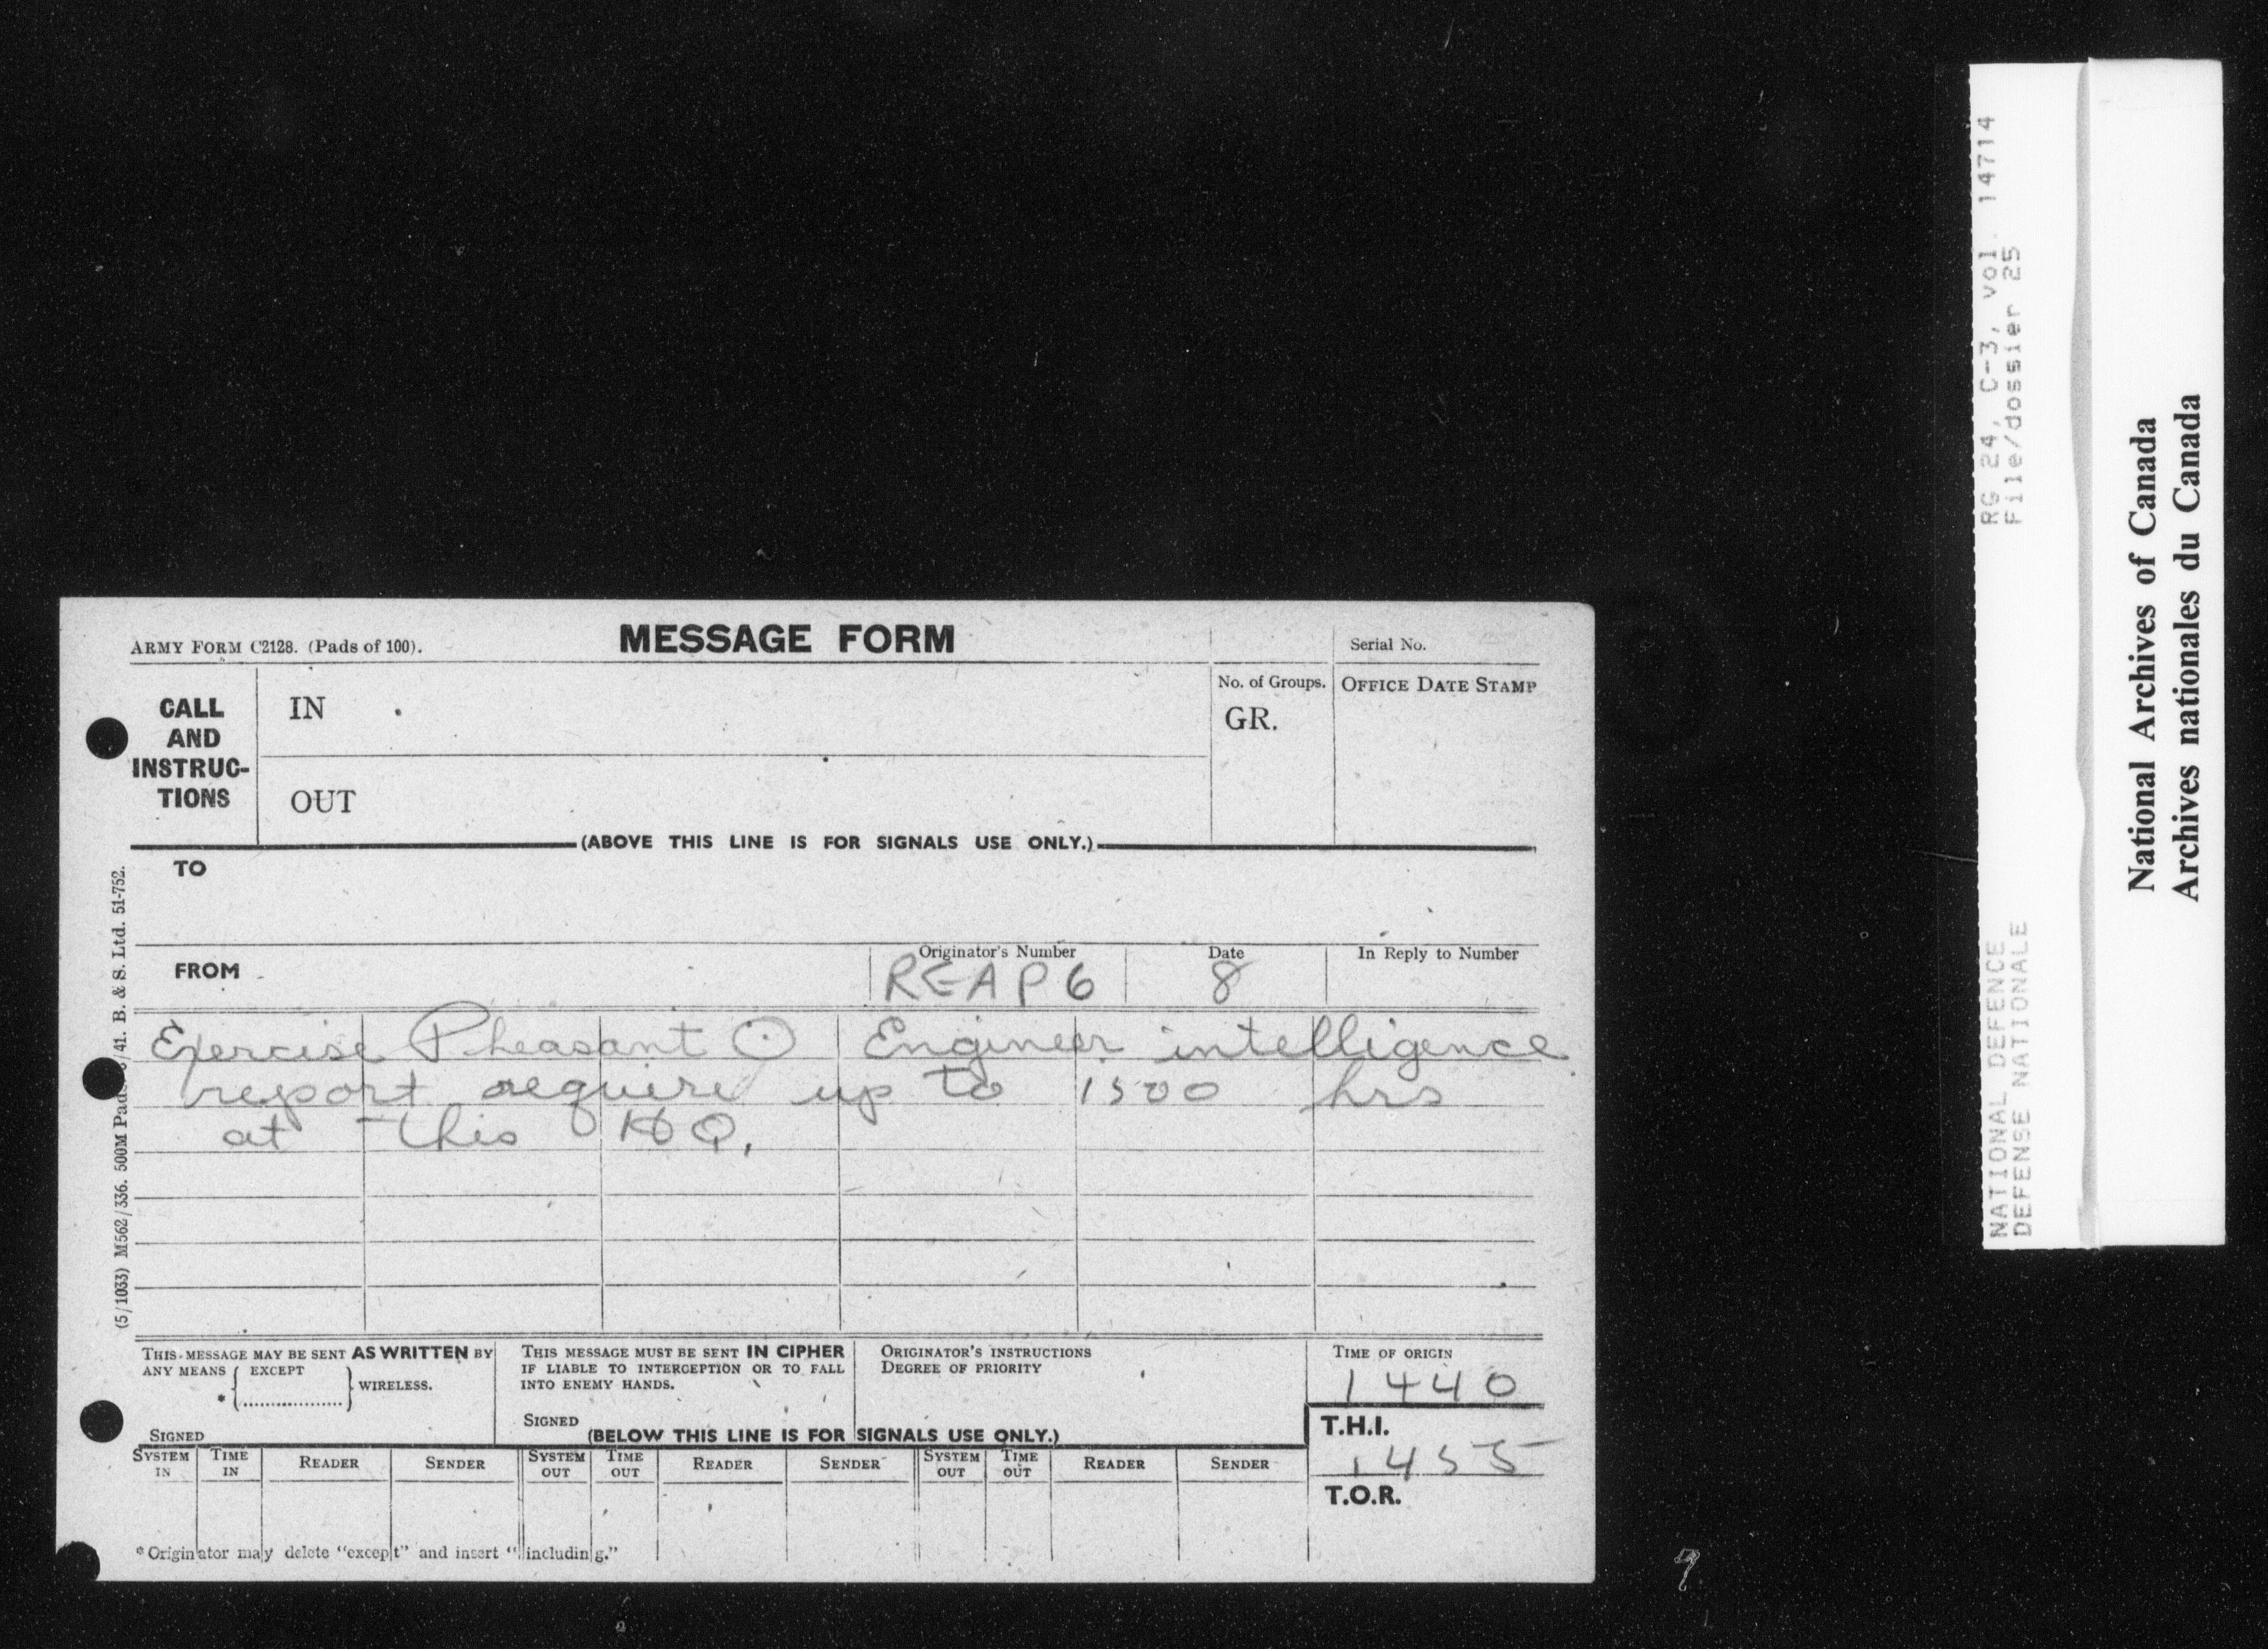 ARMY FORM C2128. (Pads of 100).
MESSAGE FORM
Serial No.
CALL AND INSTRUC-TIONS
IN
OUT
No. of Groups.
GR.
OFFICE DATE STAMP
(ABOVE THIS LINE IS FOR SIGNALS USE ONLY.)
TO
FROM
Originator's Number
REAP 6
Date
8
In Reply to Number
Exercise Pheasant ⊙ Engineer intelligence
report require up to 1500 hrs
at this HQ.
THIS MESSAGE MAY BE SENT AS WRITTEN BY
ANY MEANS { EXCEPT
* {..................} WIRELESS.
SIGNED
THIS MESSAGE MUST BE SENT IN CIPHER
IF LIABLE TO INTERCEPTION OR TO FALL
INTO ENEMY HANDS.
SIGNED
ORIGINATOR'S INSTRUCTIONS
DEGREE OF PRIORITY
TIME OF ORIGIN
1440
T.H.I.
1455
T.O.R.
(BELOW THIS LINE IS FOR SIGNALS USE ONLY.)
SYSTEM IN TIME IN READER SENDER SYSTEM OUT TIME OUT READER SENDER SYSTEM OUT TIME OUT READER SENDER
*Originator may delete "except" and insert "including."
(5/1033) M562/336. 500M Pads. /41. B. & S. Ltd. 51-752.
RG 24, C-3, vol. 14714
File/dossier 25
NATIONAL DEFENCE
DEFENSE NATIONALE
National Archives of Canada
Archives nationales du Canada